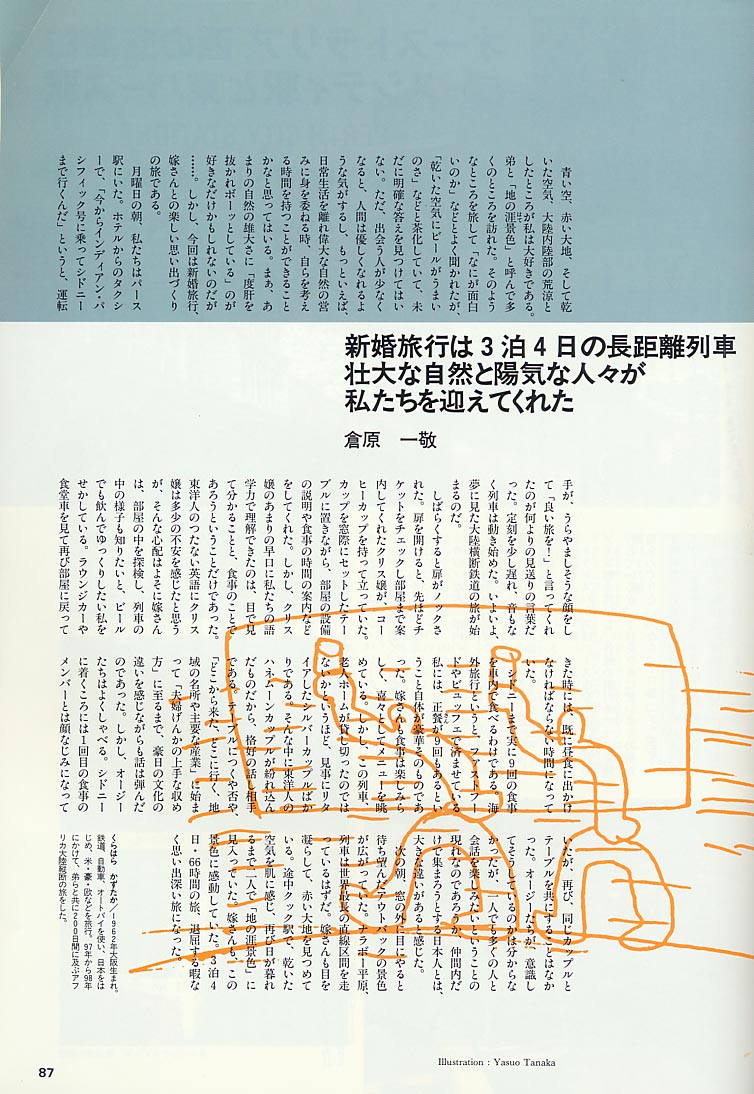 新婚旅行は3泊4日の長距離列車
壮大な自然と陽気な人々が
私たちを迎えてくれた
倉原 一敬
青い空、赤い大地、そして乾
いた空気、大陸内陸部の荒涼と
したところが私は大好きである。
弟と「地の涯景色」と呼んで多
くのところを訪れた。そのよう
なところを旅して「なにが面白
いのか」などとよく聞かれたが、
「乾いた空気にビールがうまい
のさ」などと茶化していて、未
だに明確な答えを見つけてはい
ない。ただ、出会う人が少なく
なると、人間は優しくなれるよ
うな気がするし、もっといえば、
日常生活を離れ偉大な自然の営
みに身を委ねる時、自らを考え
る時間を持つことができること
かなと思ってはいる。まぁ、あ
まりの自然の雄大さに「度肝を
抜かれボーッとしている」のが
好きなだけかもしれないのだが
……。しかし、今回は新婚旅行、
嫁さんとの楽しい思い出づくり
の旅である。
月曜日の朝、私たちはパース
駅にいた。ホテルからのタクシ
ーで、「今からインディアン・パ
シフィック号に乗ってシドニー
まで行くんだ」というと、運転
手が、うらやましそうな顔をし
て「良い旅を！」と言ってくれ
たのが何よりの見送りの言葉だ
った。定刻を少し遅れ、音もな
く列車は動き始めた。いよいよ、
夢に見た大陸横断鉄道の旅が始
まるのだ。
しばらくすると扉がノックさ
れた。扉を開けると、先ほどチ
ケットをチェックし部屋まで案
内してくれたクリス嬢が、コー
ヒーカップを持って立っていた。
カップを窓際にセットしたテー
ブルに置きながら、部屋の設備
の説明や食事の時間の案内など
をしてくれた。しかし、クリス
嬢のあまりの早口に私たちの語
学力で理解できたのは、目で見
て分かることと、食事のことで
あろうということだけであった。
東洋人のつたない英語にクリス
嬢は多少の不安を感じたと思う
が、そんな心配はよそに嫁さん
は、部屋の中を探検し、列車の
中の様子も知りたいと、ビール
でも飲んでゆっくりしたい私を
せかしている。ラウンジカーや
食堂車を見て再び部屋に戻って
きた時には、既に昼食に出かけ
なければならない時間になって
いた。
シドニーまで実に9回の食事
を車内で食べるわけである。海
外旅行というと、ファストフー
ドやビュッフェで済ませている
私には、正餐が9回もあるとい
うこと自体が豪華そのものであ
った。嫁さんも食事は楽しみら
しく、喜々としてメニューを眺
めている。しかし、この列車、
老人ホームが貸し切ったのでは
ないかというほど、見事にリタ
イアしたシルバーカップルばか
りである。そんな中に東洋人の
ハネムーンカップルが紛れ込ん
だものだから、格好の話し相手
である。テーブルにつくや否や、
「どこから来た、どこに行く、地
域の名所や主要な産業」に始ま
って「夫婦げんかの上手な収め
方」に至るまで、豪日の文化の
違いを感じながらも話は弾んだ
のであった。しかし、オージー
たちはよくしゃべる。シドニー
に着くころには1回目の食事の
メンバーとは顔なじみになって
いたが、再び、同じカップルと
テーブルを共にすることはなか
った。オージーたちが、意識し
てそうしているのかは分からな
かったが、一人でも多くの人と
会話を楽しみたいということの
現れなのであろうか。仲間内だ
けで集まろうとする日本人とは、
大きな違いがあると感じた。
次の朝、窓の外に目にやると
待ち望んだアウトバックの景色
が広がっていた。ナラボー平原、
列車は世界最長の直線区間を走
っているはずだ。嫁さんも目を
凝らして、赤い大地を見つめて
いる。途中クック駅で、乾いた
空気を肌に感じ、再び日が暮れ
るまで二人で「地の涯景色」に
見入っていた。嫁さんも、この
景色に感動していた。3泊4
日・66時間の旅、退屈する暇な
く思い出深い旅になった。
くらはら かずたか／1962年大阪生まれ。
鉄道、自動車、オートバイを使い、日本をは
じめ、米・豪・欧などを旅行。97年から98年
にかけて、弟らと共に200日間に及ぶアフ
リカ大陸縦断の旅をした。
Illustration : Yasuo Tanaka
87